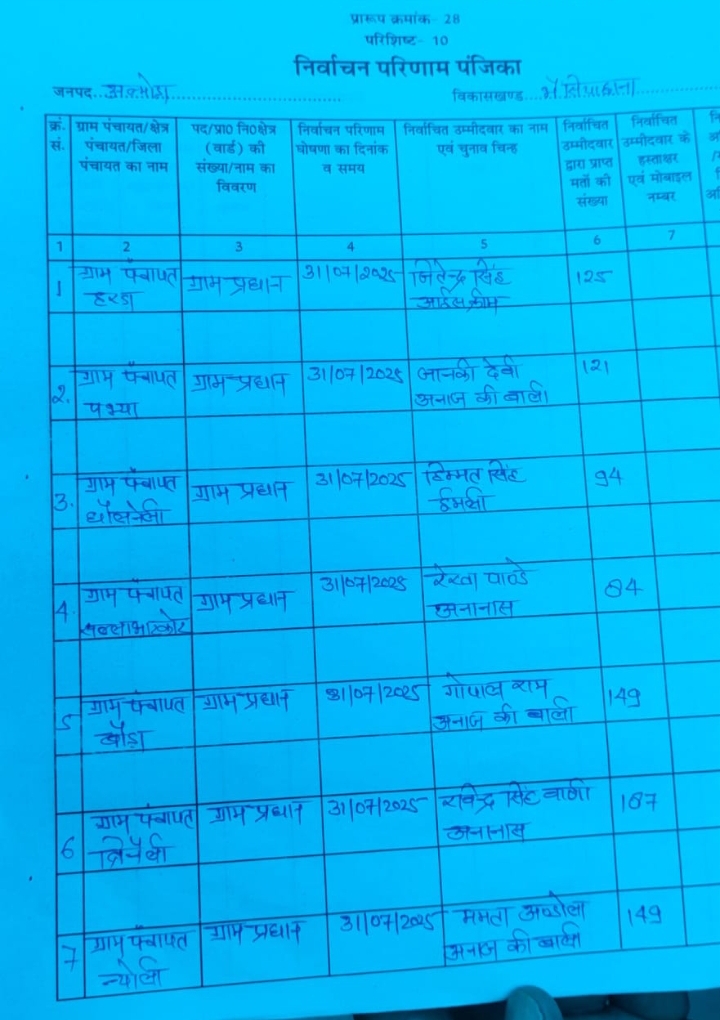 प्रारूप क्रमांक- 28
परिशिष्ट- 10
निर्वाचन परिणाम पंजिका
जनपद..अल्मोड़ा..... विकासखण्ड...भैंसियाछाना....
क्रं. सं.
ग्राम पंचायत/क्षेत्र पंचायत/जिला पंचायत का नाम
पद/प्रा0 नि0क्षेत्र (वार्ड) की संख्या/नाम का विवरण
निर्वाचन परिणाम घोषणा का दिनांक व समय
निर्वाचित उम्मीदवार का नाम एवं चुनाव चिन्ह
निर्वाचित उम्मीदवार द्वारा प्राप्त मतों की संख्या
निर्वाचित उम्मीदवार के हस्ताक्षर एवं मोबाइल नम्बर
1 2 3 4 5 6 7
1 ग्राम पंचायत ग्राम प्रधान 31/07/2025 जितेन्द्र सिंह 125
हरड़ा आईसक्रीम
2. ग्राम पंचायत ग्राम प्रधान 31/07/2025 जानकी देवी 121
पभ्या अनाज की बाली
3. ग्राम पंचायत ग्राम प्रधान 31/07/2025 हिम्मत सिंह 94
धौलनेली इमली
4. ग्राम पंचायत ग्राम प्रधान 31/07/2025 रेखा पाण्डे 84
अनानास
5 ग्राम पंचायत ग्राम प्रधान 31/07/2025 गोपाल राम 149
अनाज की बाली
6 ग्राम पंचायत ग्राम प्रधान 31/07/2025 रविन्द्र सिंह 167
अनानास
7 ग्राम पंचायत ग्राम प्रधान 31/07/2025 ममता 149
न्योली अनाज की बाली